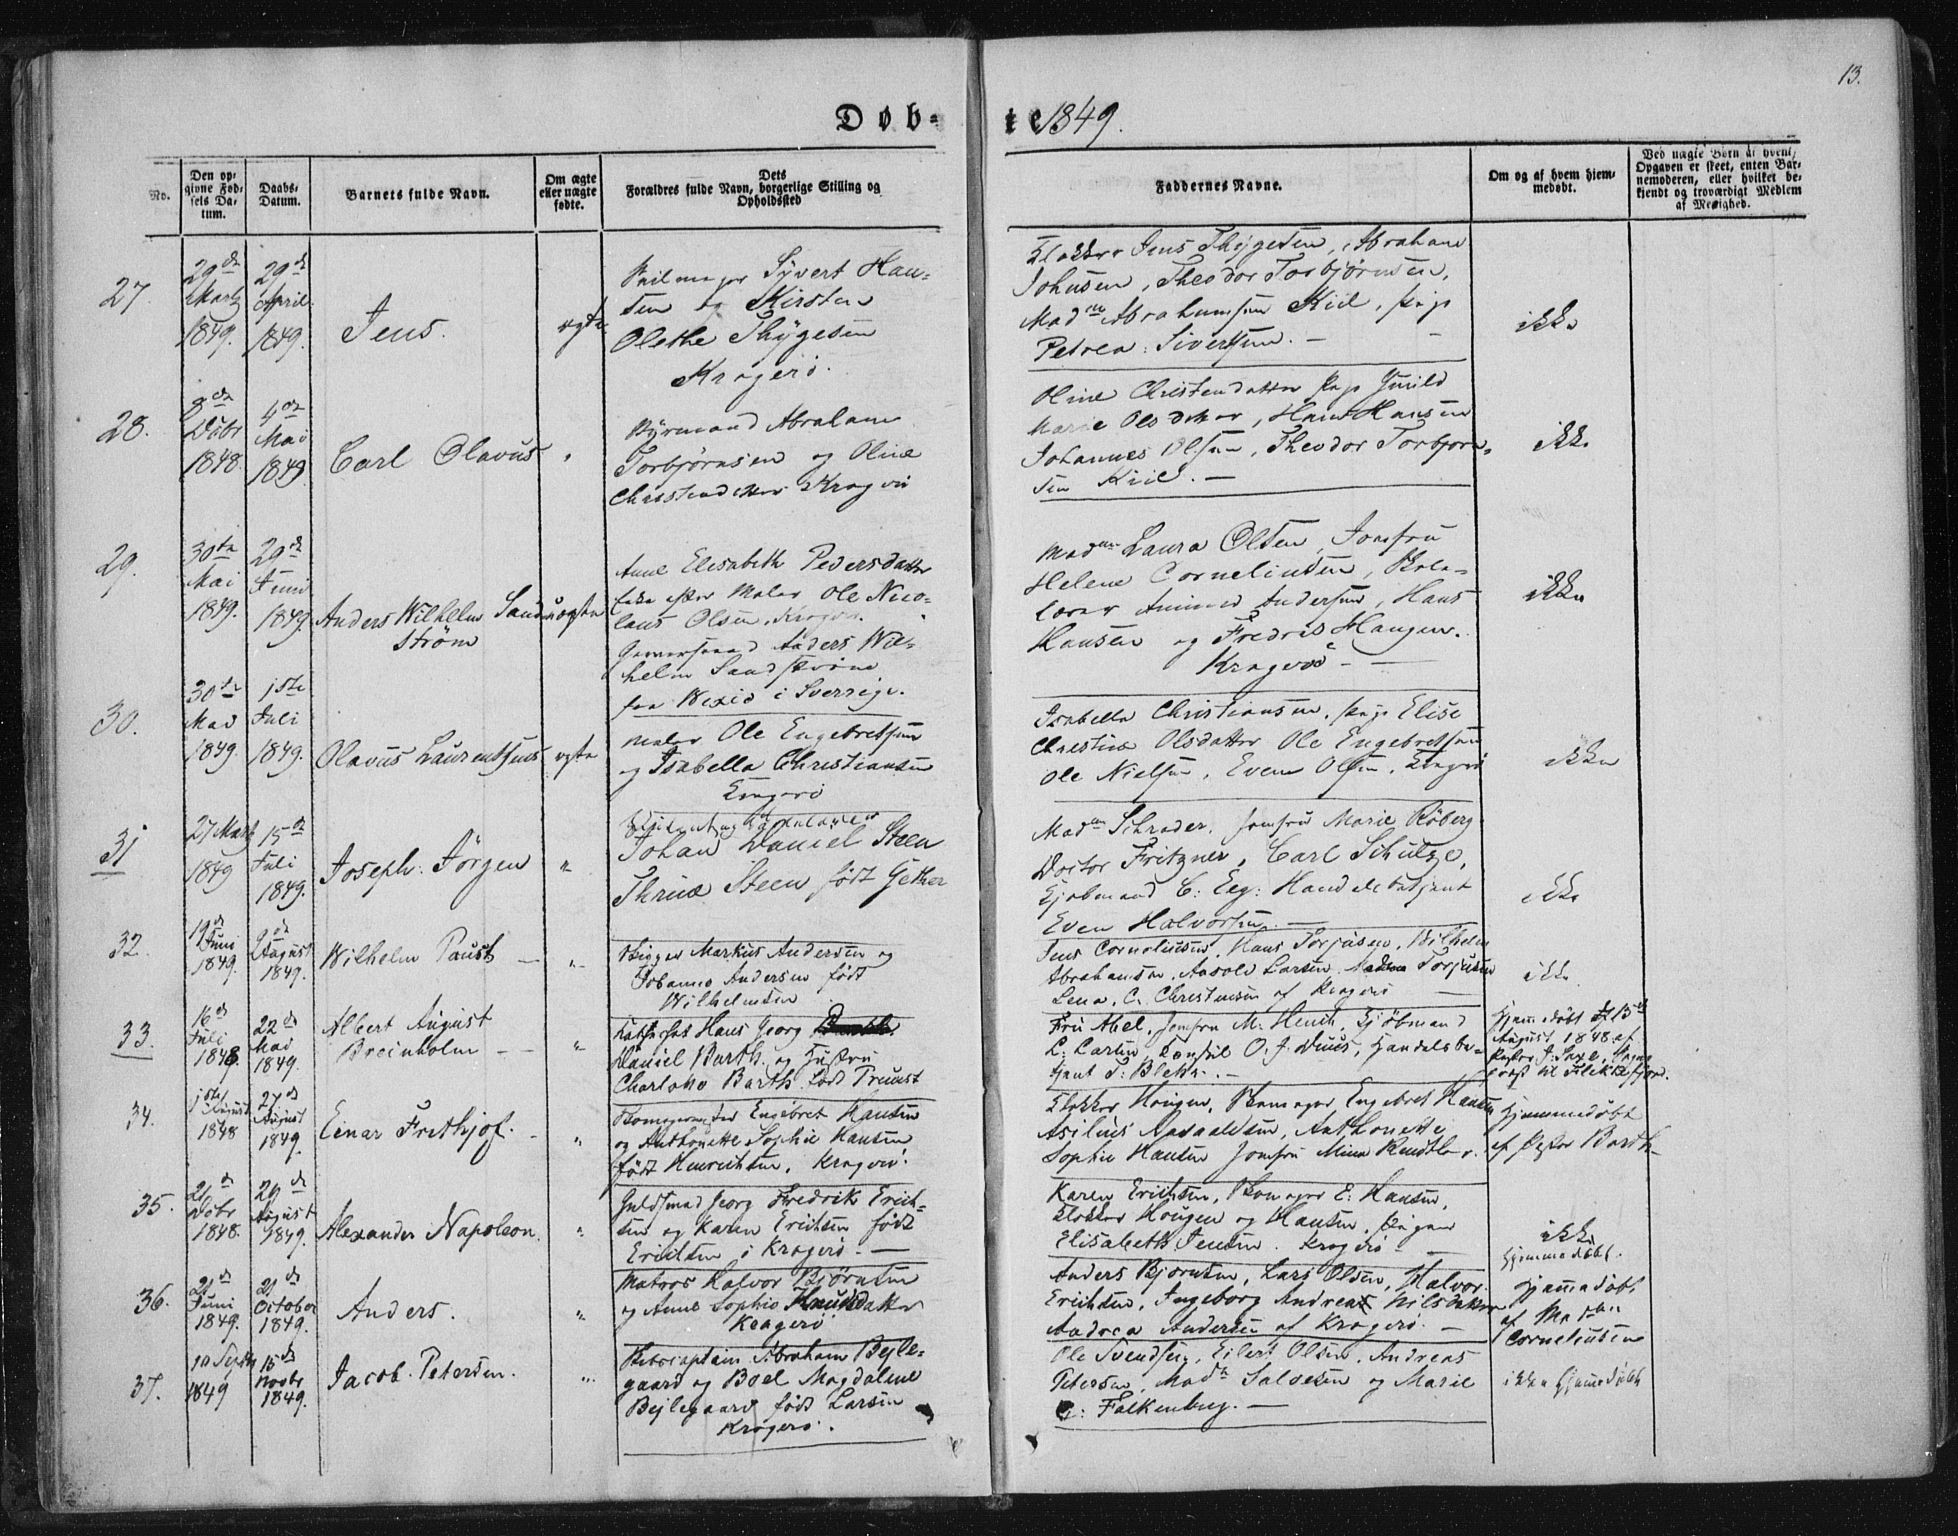 13.
Døb-
te 1849.
No.
Den op-
givne Fød-
sels Da-
tum.
Daabs-
Datum.
Barnets fulde Navn.
Om ægte
eller uægte
fødte.
Dets
Forældres fulde Navn, borgerlige Stilling og
Opholdssted
Faddernes Navne.
Om og af hvem hjem-
medøbt.
Ved uægte Børn af hvem,
Opgaven er skeet, enten Bar-
nemoderen, eller hvilket be-
kjendt og troværdigt Medlem
af Menighed.
27.
29de
Marts
1849.
29de
April
1849.
Jens.
ægte
Seilmager Syvert Han-
sen og Kirsten
Olethe Thygesen
Kragerö.
Klokker Jens Thygesen, Abraham
Johnsen, Theodor Torbjørnsen,
Madme Abrahamsen Kiil, pige
Petrea Sivertsen. —
ikke
28.
8de
Dcbr
1848.
4de
Mai
1849
Carl Olavus
"
Byemand Abraham
Torbjørnsen og Oline
Christensdatter Kragerö
Oline Christensdatter Pige Gunild
Marie Olsdatter, Hans Hansen
Johannes Olsen, Theodor Torbjørn-
sen Kiil. —
ikke
29.
30te
Mai
1849.
29de
Juni
1849.
Anders Wilhelm Sand-
ström
uægte
Anne Elisabeth Pedersdatter
Enke efter Maler Ole Nico-
laus Olsen, Kragerö.
Garversvend Anders Wil-
helm Sandström
fra Wexiö i Sverrige.
Madme Laura Olsen, Jomfru
Helene Corneliusen, Skole-
lærer Amund Andersen, Hans
Hansen og Fredrik Haugen.
Kragerö —
ikke
30.
30te
Mai
1849.
1ste
Juli
1849.
Olavus Laurentius
ægte
Maler Ole Engebretsen
og Isabella Christiansen
Kragerö
Isabella Christiansen, pige Elise
Christine Olsdatter Ole Engebretsen
Ole Nielsen, Even Olsen, Kragerö
ikke
31
27 Marts
1849
15de
Juli
1849.
Joseph. Jörgen
"
Johan Daniel Steen
Thrine Steen født Gether
Madme Schrader, Jomfru Marie Röberg
Doctor Fritzner, Carl Schulze,
Kjøbmand C: Eeg: Handelsbetjent
Even Halvorsen. —
ikke
32.
19de
Juni
1849.
9de
August
1849.
Wilhelm Paust —
"
Bygger Markus Andersen og
Johanne Andersen født
Wilhelmsen
Jens Corneliusen, Hans Torjusen, Wilhelm
Abrahamsen, Aasold Larsen, Madme Torjusen
Lena C. Christensen af Kragerö —
ikke
33.
16de
Juli
1848.
22de
Mai
1849.
Albert August
Breinholm —
"
Hans Georg
Daniel Barth og Hustru
Charlotte Barth født Preust
Fru Abel, Jomfru M. Heuch, Kjöbmand
L. Larsen, Konsul O. J. Duus, Handelsbe-
tjent T: Blehr. —
Hjemmedöbt d 13de
August 1848 af
Pastor J: Saxe, Sogne-
præst til Flekkefjord.
34.
1ste
August
1848
27de
August
1849.
Einar Frithjof. —
"
Skomagermester Engebret Hansen
og Anthonette Sophie Hansen
født Henrichsen, Kragerö.
Klokker Hougen, Skomager Engebret Hansen
Asilius Aasvaldsen, Anthonette
Sophie Hansen Jomfru Mina Rendtler.
Hjemmedöbt
af Pastor Barth —
35.
21de
Dcbr
1848.
26de
August
1849.
Alexander Napoleon.
"
Guldsmed Georg Fredrik Erich-
sen og Karen Erichsen født
Erichsen i Kragerö. —
Karen Erichsen, Skomager E: Hansen,
Klokker Hougen og Hansen, pigen
Elisabeth Jensen. Kragerö —
ikke
hjemmedöbt.
36.
21de
Juni
1849.
21de
October
1849.
Anders.
"
Matros Halvor Björnsen
og Anne Sophie Knudsdatter
Kragerö
Anders Björnsen, Lars Olsen, Halvor
Erichsen, Ingeborg Andrea Nilsdatter
Andrea Andersen af Kragerö. —
Hjemmedöbt
af Madme
Corneliusen
37.
10 Septbr
1849
15de
Novbr
1849.
Jacob. Petersen.
"
Skibscaptain Abraham Bejle-
gaard og Boel Magdalene
Bejlegaard født Larsen
Kragerö.
Ole Svendsen, Eilert Olsen, Andreas
Petersen, Madm Salvesen og Marie
G: Falkenberg. —
ikke hjemmedöbt